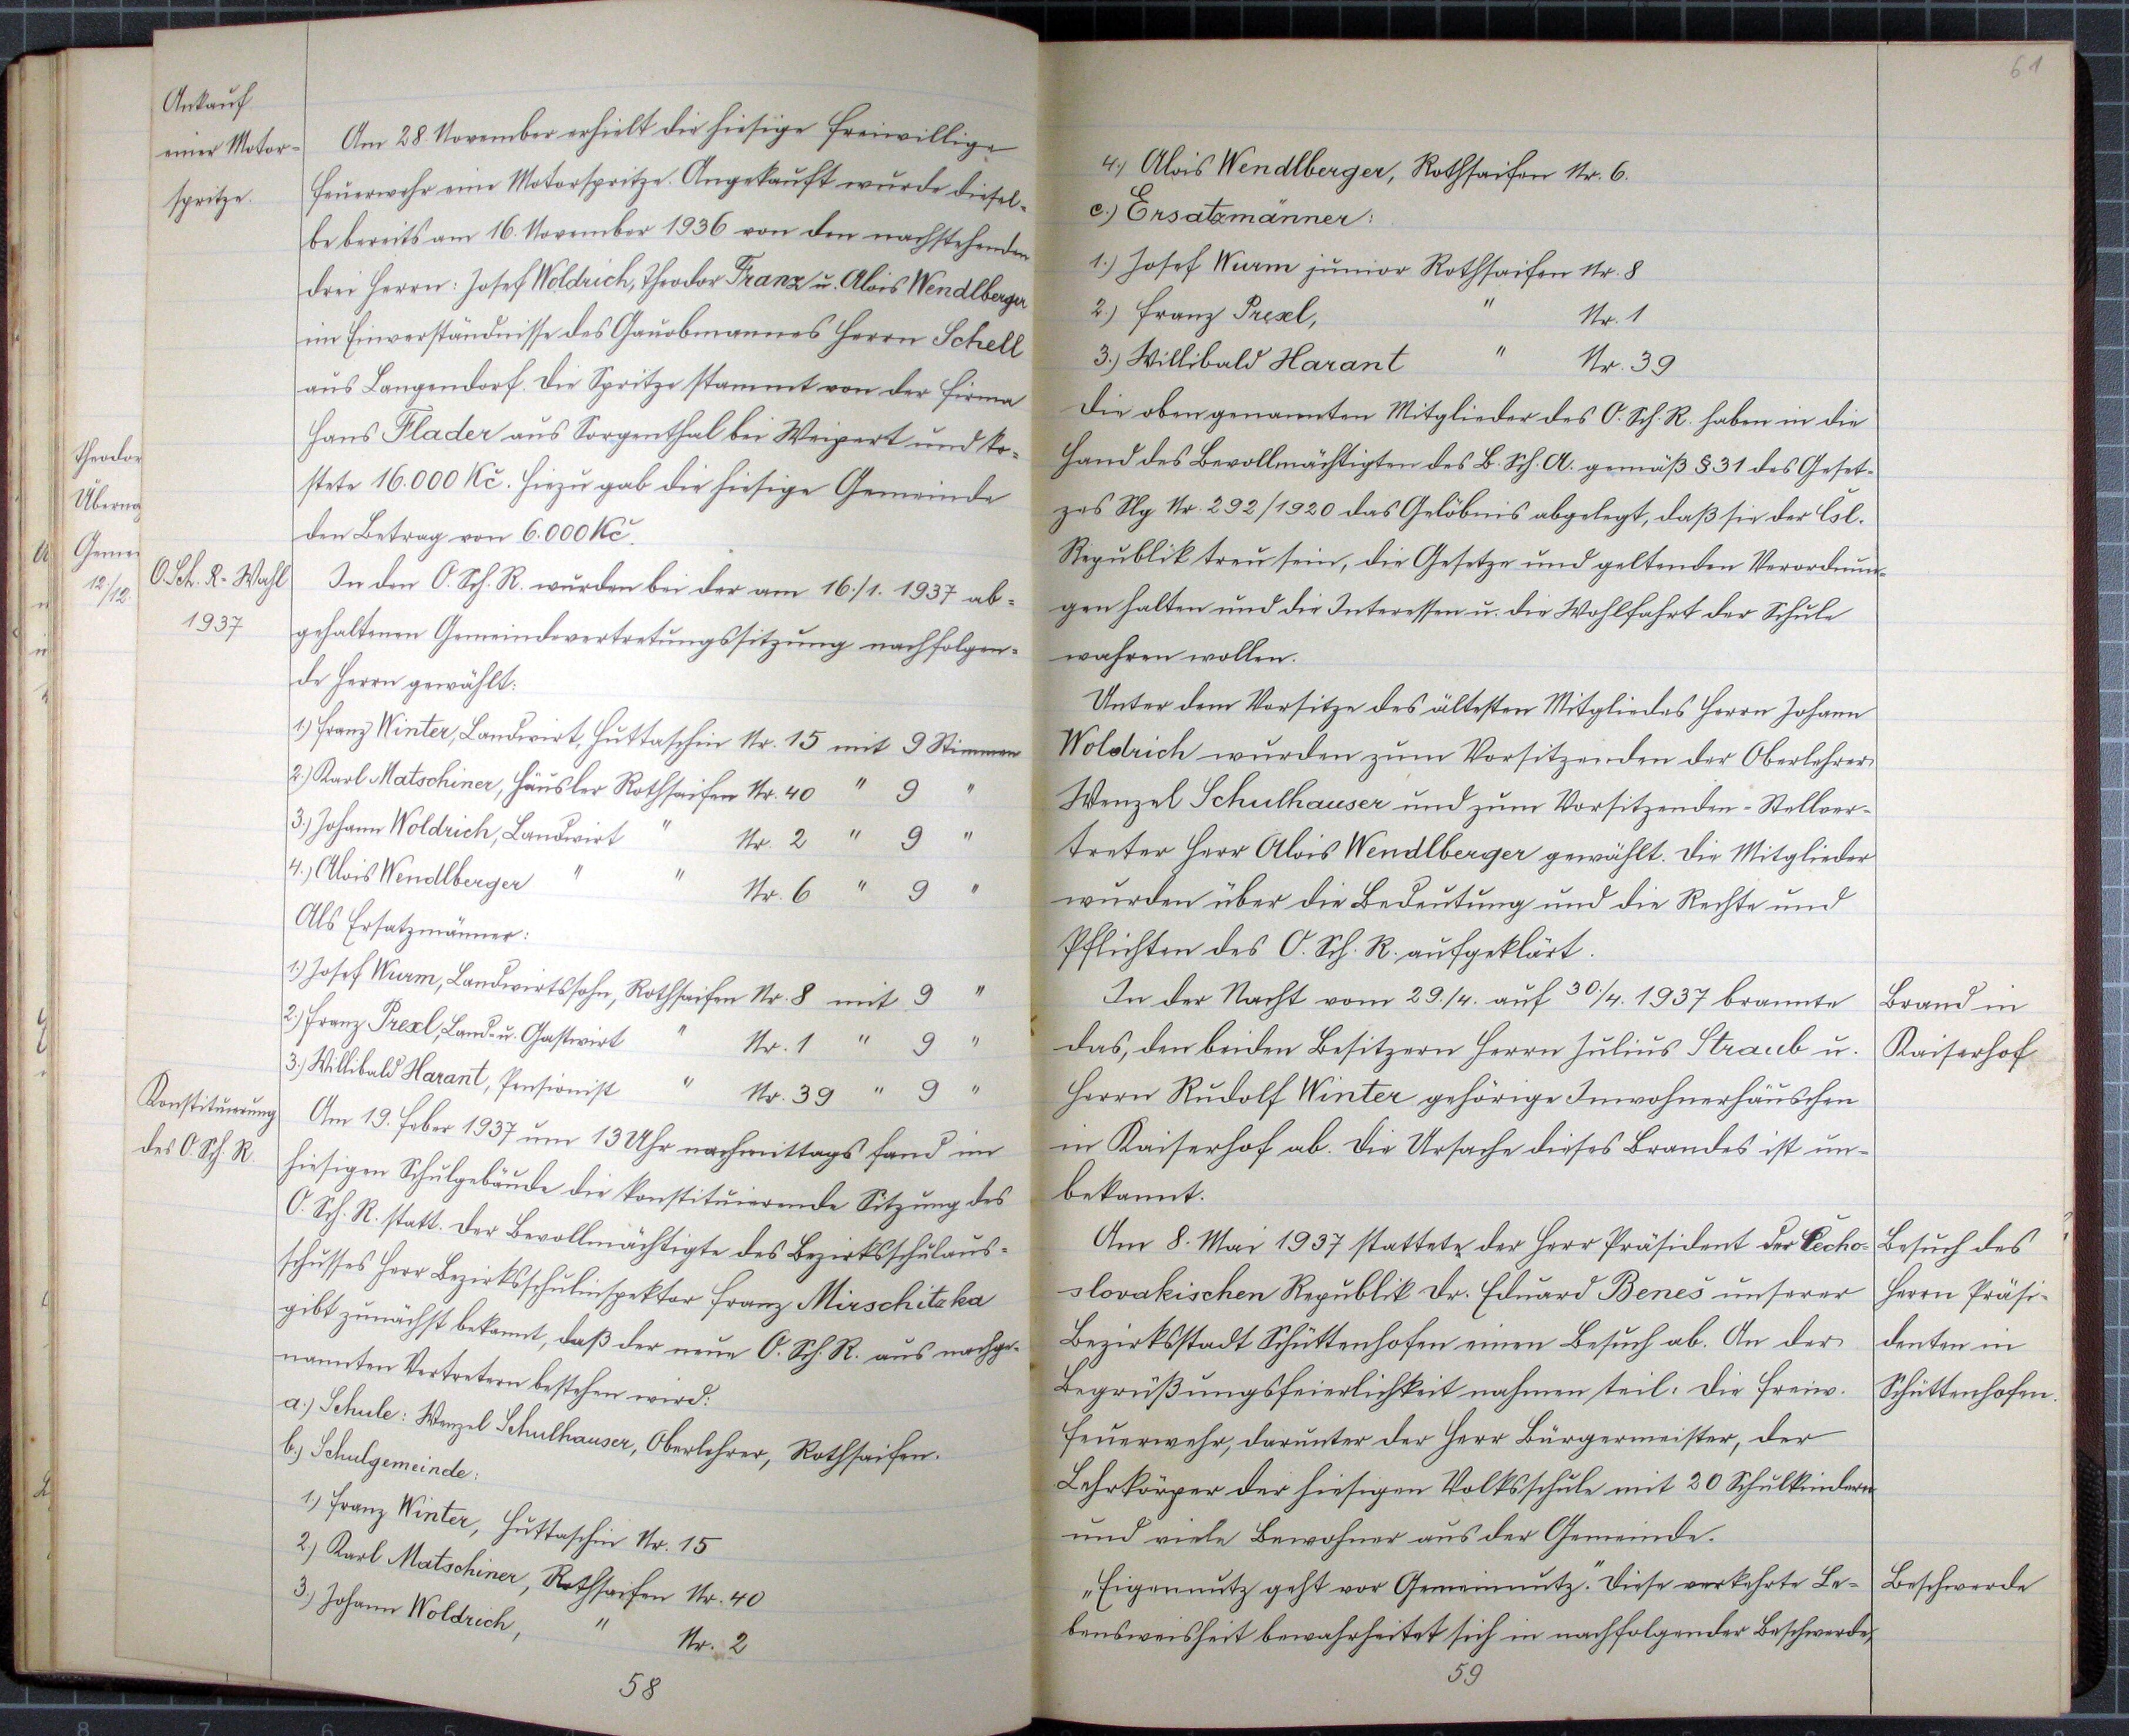 Ankauf
einer Motor=
spritze.
Am 28. November erhielt die hiesige freiwillige
Feuerwehr eine Motorspritze. Angekauft wurde diesel-
be bereits am 16. November 1936 von den nachstehenden
drei Herrn: Josef Woldrich, Theodor Franz u. Alois Wendlberger
im Einverständnisse des Gauobmannes Herrn Schell
aus Langendorf. Die Spritze stammt von der Firma
Hans Flader aus Sorgenthal bei Weipert und ko-
stete 16.000 Kč. Hiezu gab die hiesige Gemeinde
den Betrag von 6.000 Kč.
O. Sch. R.-Wahl
1937
In den O. Sch. R. wurden bei der am 16./1. 1937 ab=
gehaltenen Gemeindevertretungssitzung nachfolgen=
de Herrn gewählt:
1.) Franz Winter, Landwirt, Huttaschin Nr. 15 mit 9 Stimmen
2.) Karl Matschiner, Häusler Rothsaifen Nr. 40 " 9 "
3.) Johann Woldrich, Landwirt " Nr. 2 " 9 "
4.) Alois Wendlberger " " Nr. 6 " 9 "
Als Ersatzmänner:
1.) Josef Wurm, Landwirtssohn, Rothsaifen Nr. 8 mit 9 "
2.) Franz Prexl, Land- u. Gastwirt " Nr. 1 " 9 "
3.) Willibald Harant, Pensionist " Nr. 39 " 9 "
Konstituierung
des O. Sch. R.
Am 19. Feber 1937 um 13 Uhr nachmittags fand im
hiesigen Schulgebäude die konstituierende Sitzung des
O. Sch. R. statt. Der Bevollmächtigte des Bezirksschulaus=
schusses Herr Bezirksschulinspektor Franz Mirschitzka
gibt zunächst bekannt, daß der neue O. Sch. R. aus nachge-
nannten Vertretern bestehen wird:
a.) Schule: Wenzel Schulhauser, Oberlehrer, Rothsaifen.
b.) Schulgemeinde:
1.) Franz Winter, Huttaschin Nr. 15
2.) Karl Matschiner, Rothsaifen Nr. 40
3.) Johann Woldrich, " Nr. 2
58
Theodor
Gemei
12/12.
61
4.) Alois Wendlberger, Rothsaifen Nr. 6.
c.) Ersatzmänner:
1.) Josef Wurm junior Rothsaifen Nr. 8
2.) Franz Prexl, " Nr. 1
3.) Willibald Harant " Nr. 39
Die oben genannten Mitglieder des O. Sch. R. haben in die
Hand des Bevollmächtigten des B. Sch. A. gemäß § 31 des Geset-
zes Slg Nr. 292/1920 das Gelöbnis abgelegt, daß sie der Čsl.
Republik treu sein, die Gesetze und geltenden Verordnun-
gen halten und die Interessen u. die Wohlfahrt der Schule
wahren wollen.
Unter dem Vorsitze des ältesten Mitgliedes Herrn Johann
Woldrich wurden zum Vorsitzenden der Oberlehrer
Wenzel Schulhauser und zum Vorsitzenden-Stellver-
treter Herr Alois Wendlberger gewählt. Die Mitglieder
wurden über die Bedeutung und die Rechte und
Pflichten des O. Sch. R. aufgeklärt.
In der Nacht vom 29./4. auf 30./4. 1937 brannte
das, den beiden Besitzern Herrn Julius Straub u.
Herrn Rudolf Winter gehörige Inwohnerhäuschen
in Kaiserhof ab. Die Ursache dieses Brandes ist un-
bekannt.
Brand in
Kaiserhof
Am 8. Mai 1937 stattete der Herr Präsident der Čecho-
slovakischen Republik Dr. Eduard Beneš unserer
Bezirksstadt Schüttenhofen einen Besuch ab. An der
Begrüßungsfeierlichkeit nahmen teil: Die freiw.
Feuerwehr, darunter der Herr Bürgermeister, der
Lehrkörper der hiesigen Volksschule mit 20 Schulkindern
und viele Bewohner aus der Gemeinde.
Besuch des
Herrn Präsi-
denten in
Schüttenhofen.
„Eigennutz geht vor Gemeinnutz." Diese verkehrte Le-
bensweisheit bewahrheitet sich in nachfolgender Beschwerde,
Beschwerde
59